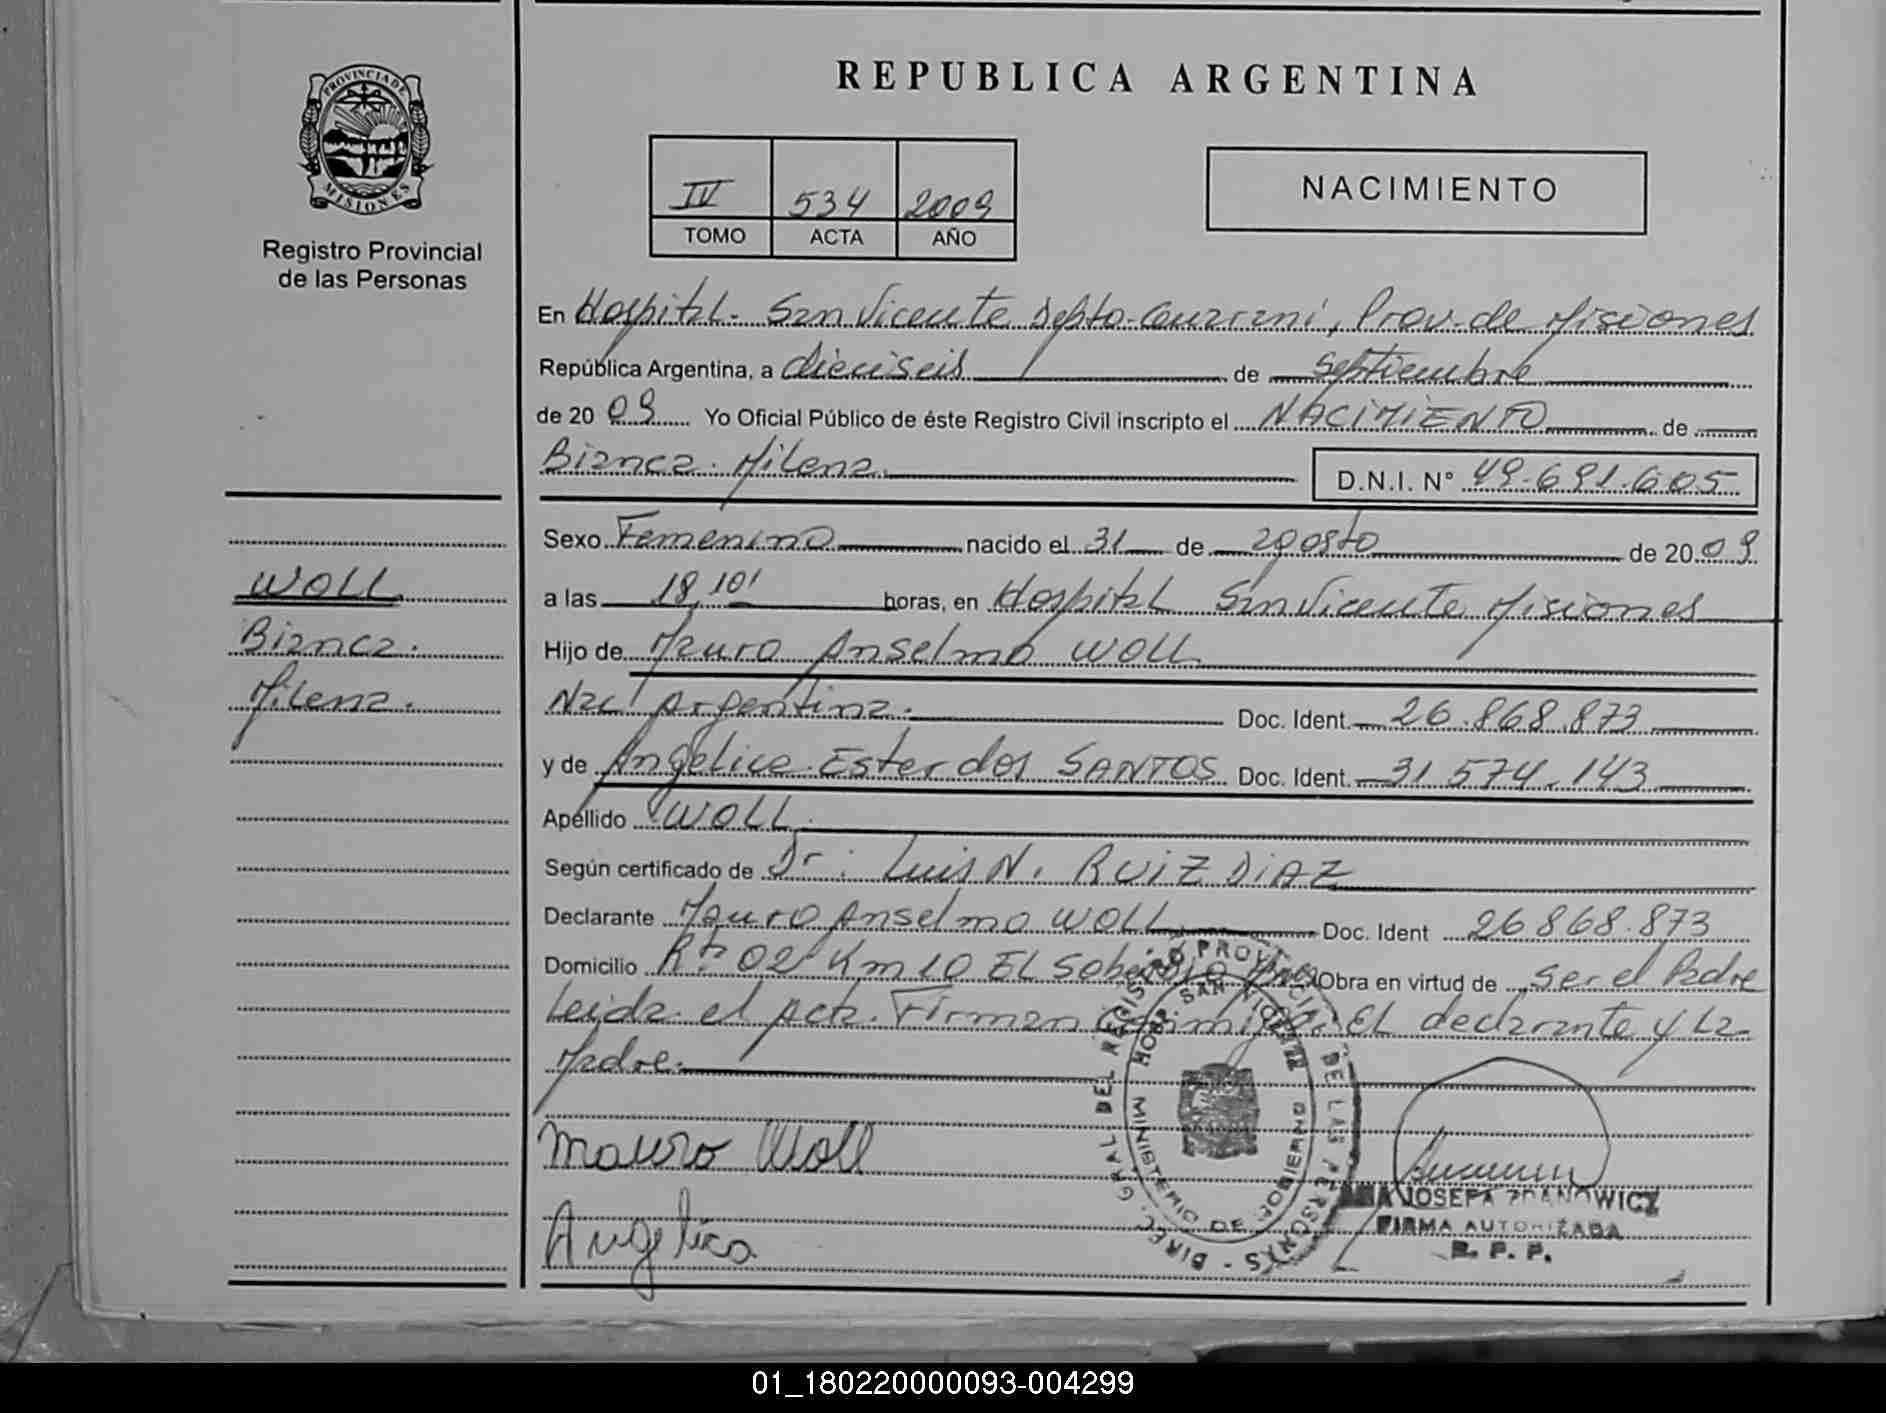 REPUBLICA ARGENTINA
PROVINCIA DE
MISIONES
Registro Provincial
de las Personas
IV 534 2009
TOMO ACTA AÑO
NACIMIENTO
En Hospital. San Vicente Depto-Guarani, Prov. de Misiones
República Argentina, a dieciseis de septiembre
de 2009 Yo Oficial Público de éste Registro Civil inscripto el NACIMIENTO de
Bianca. Milena. D.N.I. N° 49.691.605
Sexo Femenino nacido el 31 de agosto de 2009
WOLL
Bianca.
Milena.
a las 18,10' horas, en Hospital San Vicente Misiones
Hijo de Mauro Anselmo WOLL
Nac. Argentina. Doc. Ident. 26.868.873
y de Angelica Ester dos SANTOS Doc. Ident. 31.574.143
Apellido WOLL
Según certificado de Dr: Luis N. RUIZ DIAZ
Declarante Mauro Anselmo WOLL Doc. Ident 26868.873
Domicilio Rta 02 Km 10 EL Soberbio Obra en virtud de ser el Padre
Leida el Acta. Firman EL declarante y La
Madre.
Mauro Woll
Angelica
DIREC. GRAL DEL REGISTRO PROVINCIAL DE LAS PERSONAS
HOSP SAN VICENTE
MINISTERIO DE GOBIERNO
ANA JOSEFA ZDANOWICZ
FIRMA AUTORIZADA
R. P. P.
01_180220000093-004299